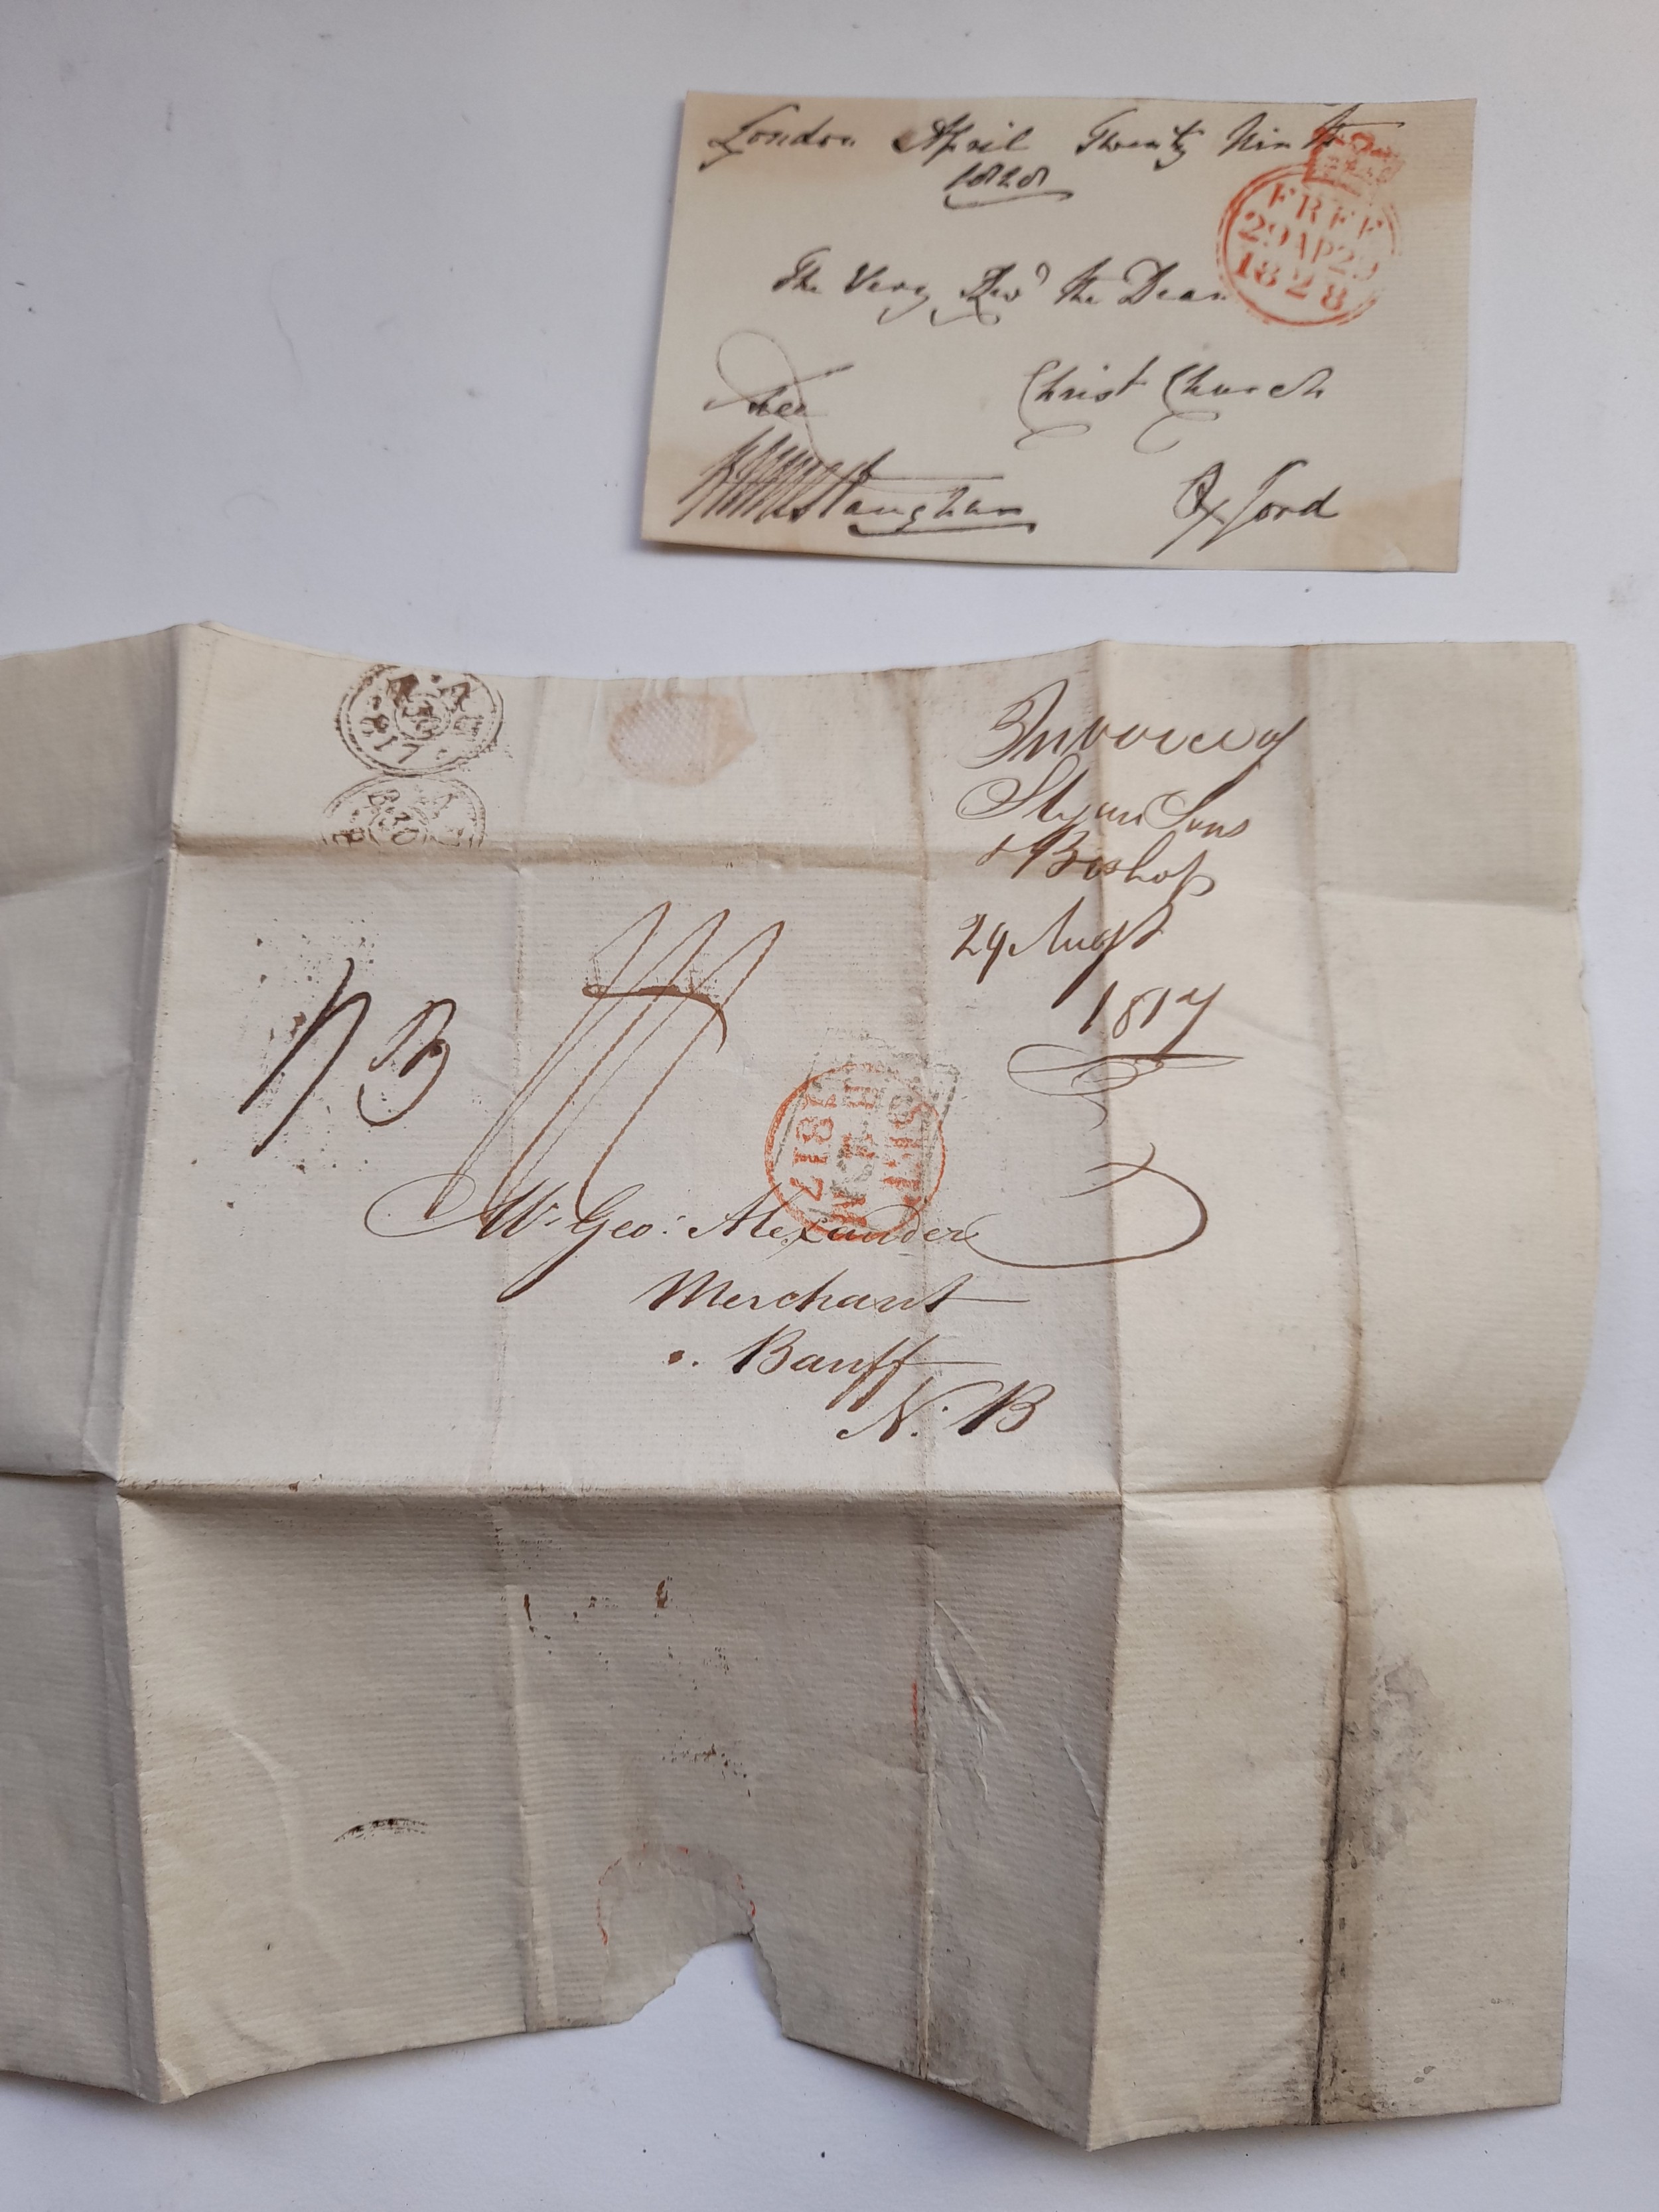 London April Twenty Ninth
1828
FREE
29AP29
1828
The Very Revd the Dean
Christ Church
Oxford
1817
30
Invoice of
Sons
& Bishop
29 Augt
1817
NB
1817
Mr. Geo: Alexander
Merchant
Banff
N. B